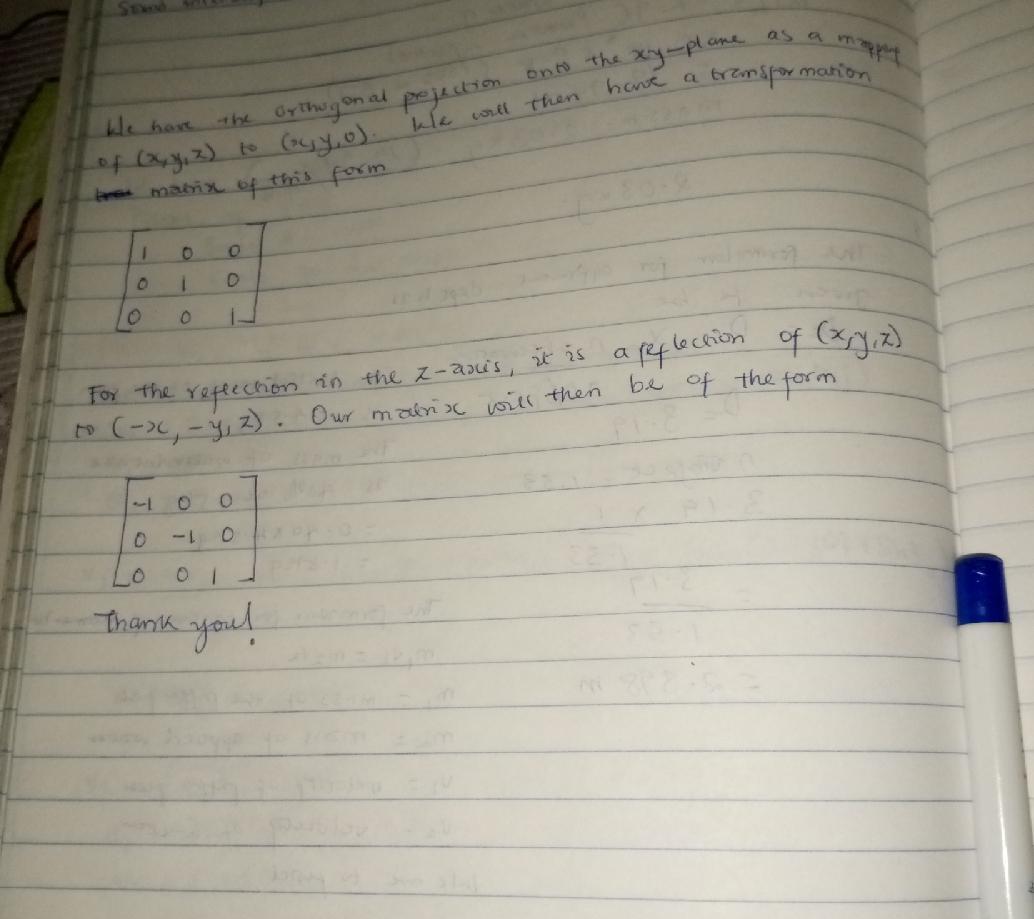 We have the orthogonal projection onto the xy-plane as a mapping
of (x,y,z) to (x,y,0). We will then have a transformation
matrix of this form
1 0 0
0 1 0
0 0 1
For the reflection in the z-axis, it is a reflection of (x,y,z)
to (-x, -y, z). Our matrix will then be of the form
-1 0 0
0 -1 0
0 0 1
Thank you!